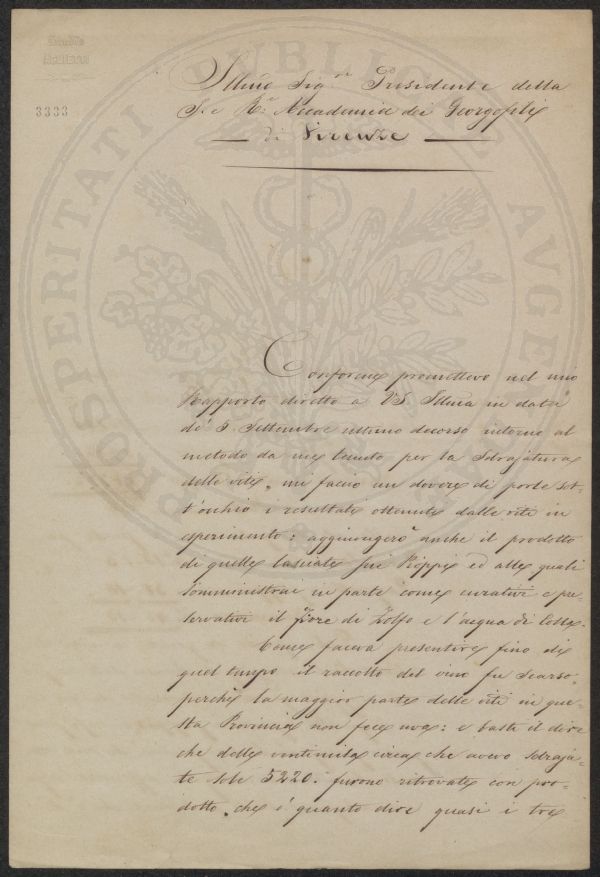 3333
Illmo Sig.re Presidente della
I. e R.e Accademia dei Georgofili
di Firenze
Conforme promettevo nel mio
Rapporto diretto a VS Illma in data
de' 3. Settembre ultimo decorso intorno al
metodo da me tenuto per la Sdrajatura
delle viti, mi faccio un dovere di porle sot-
t'occhio i resultati ottenuti dalle viti in
esperimento: aggiungerò anche il prodotto
di quelle lasciate sui Pioppi ed alle quali
somministrai in parte come curativi e pre-
servativi il Fiore di Zolfo e l'acqua di
Come faceva presentire fino di
quel tempo il raccolto del vino fu scarso,
perchè la maggior parte delle viti in que-
sta Provincia non fece uva: e basti il dire
che delle ventimila circa che avevo sdraja-
te sole 5220. furono ritrovate con pro-
dotto, che è quanto dire quasi i tre
PROSPERITATI PUBLICAE AUGENDAE